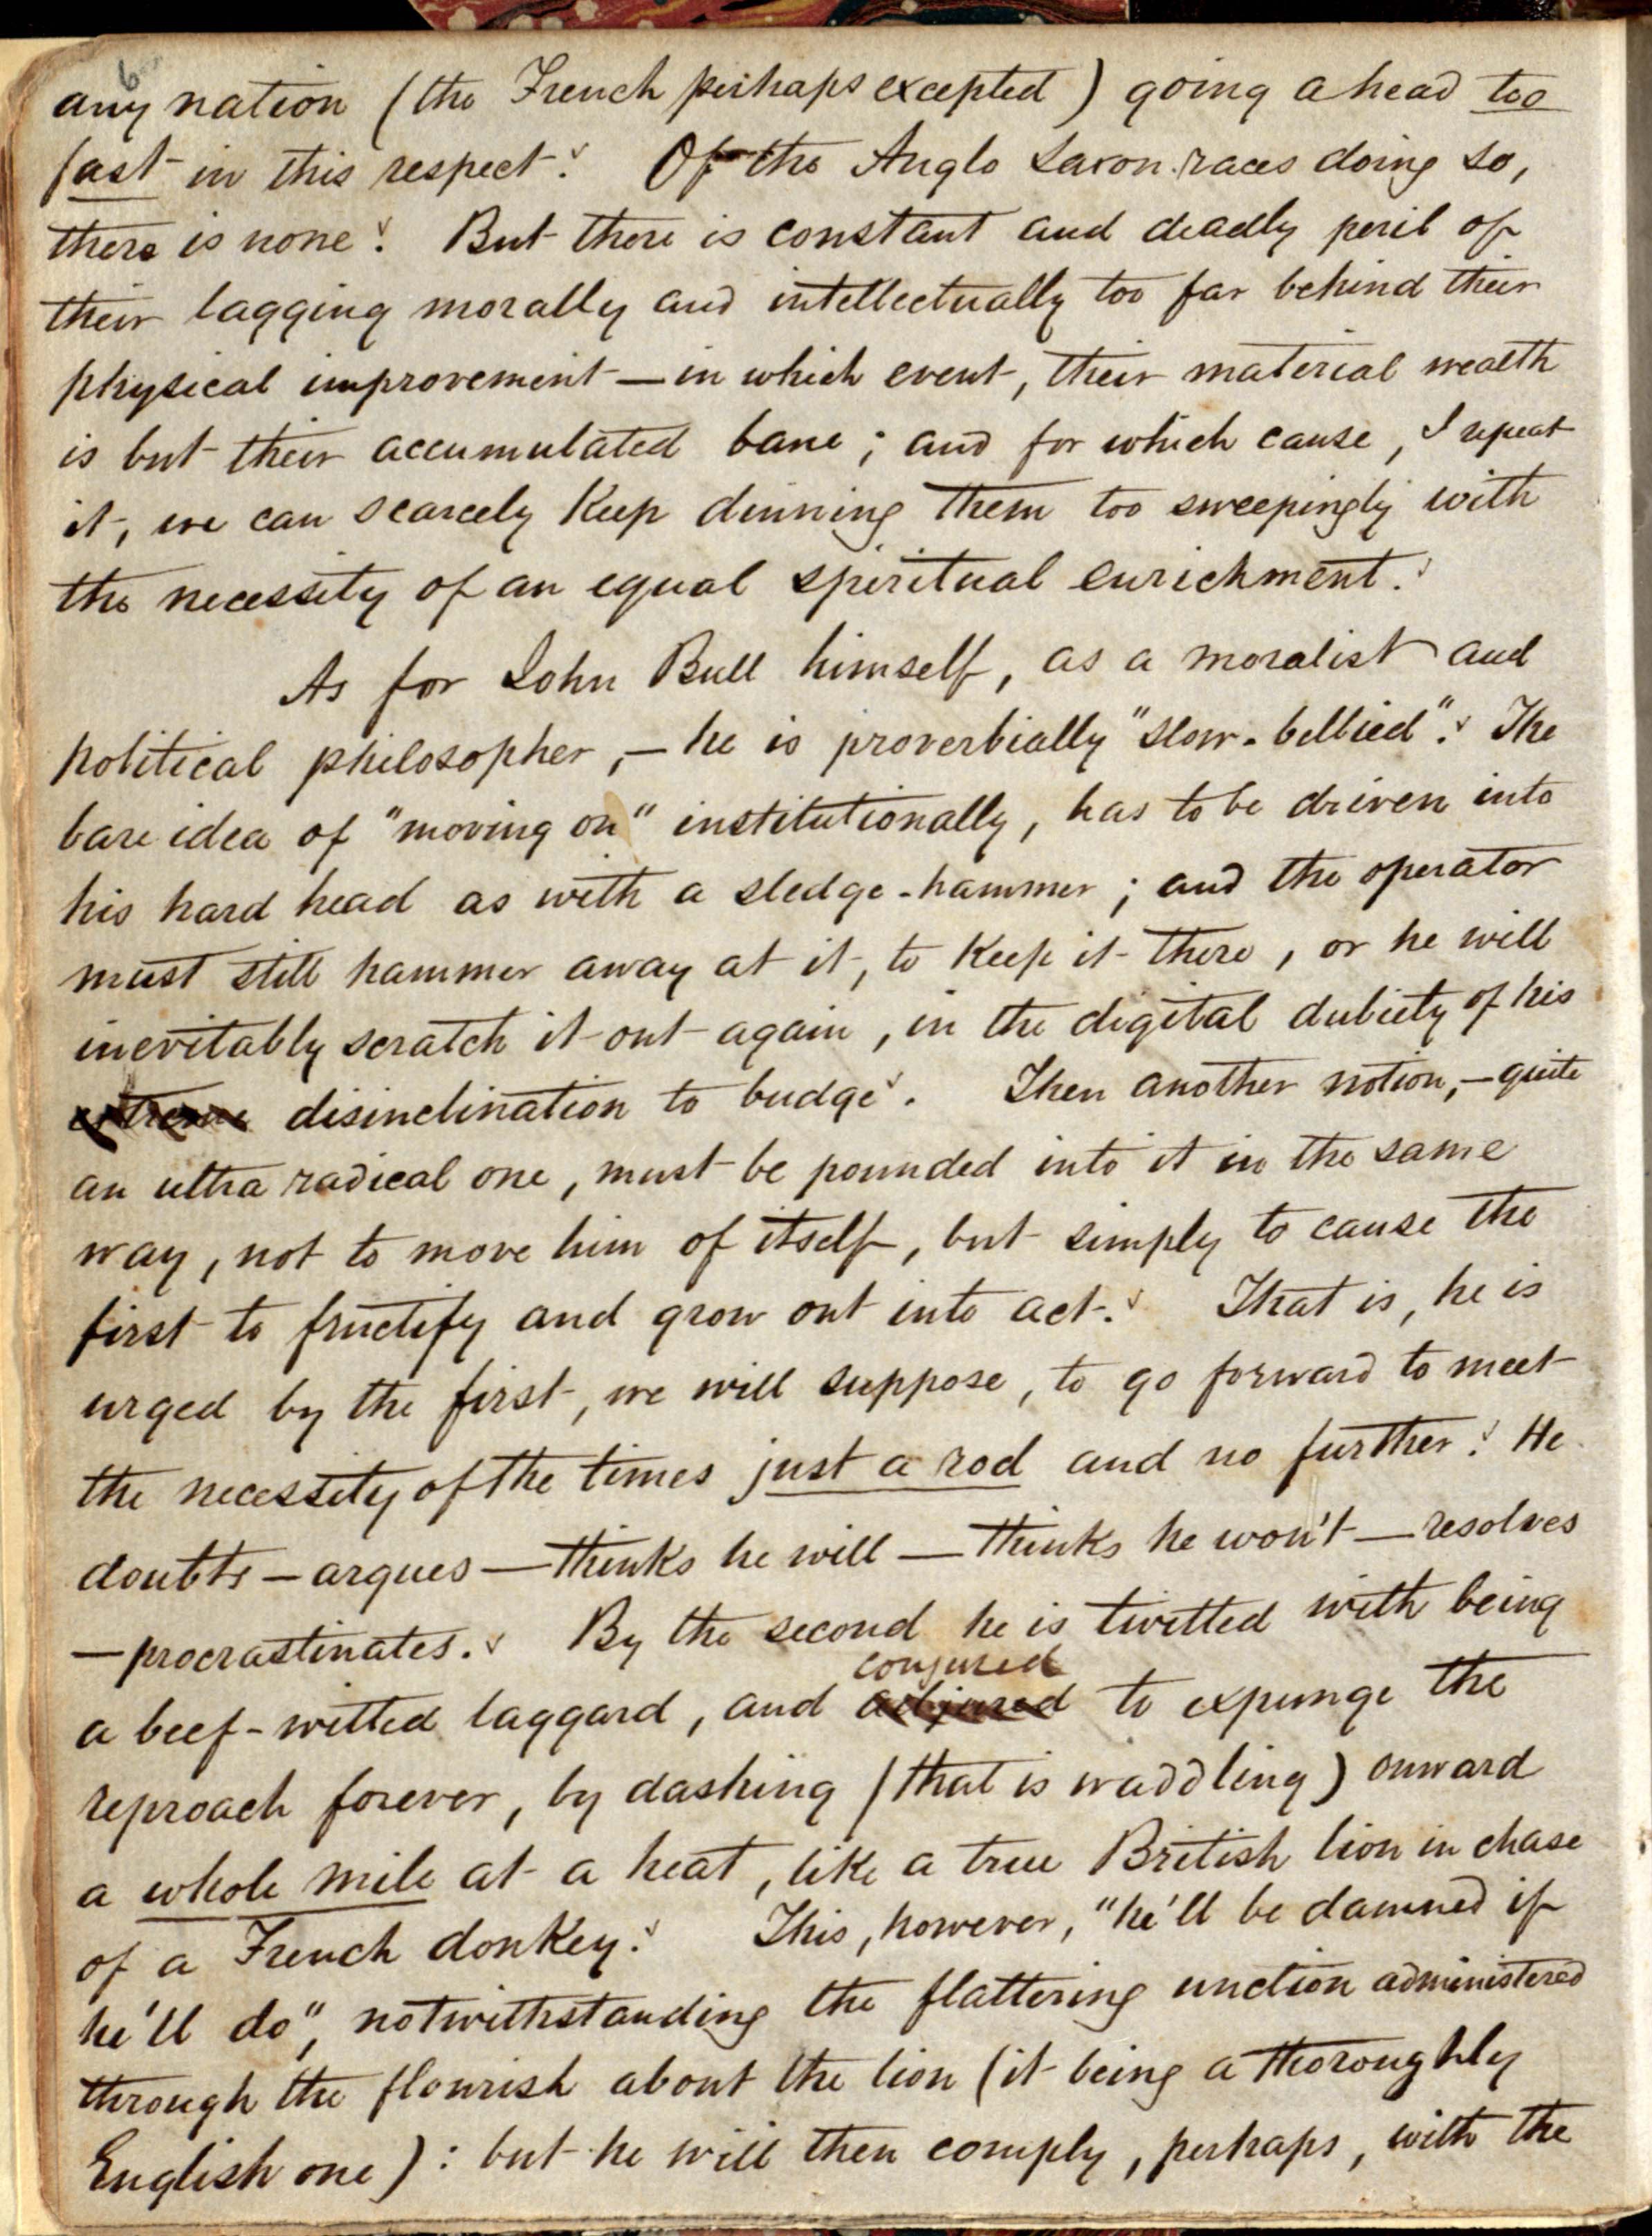 6
any nation (the French perhaps excepted) going ahead too
fast in this respect. Of the Anglo Saxon races doing so,
there is none. But there is constant and deadly peril of
their lagging morally and intellectually too far behind their
physical improvement — in which event, their material wealth
is but their accumulated bane; and for which cause, I repeat
it, we can scarcely keep dinning them too sweepingly with
the necessity of an equal spiritual enrichment.
As for John Bull himself, as a moralist and
political philosopher, — he is proverbially "slow-bellied". The
bare idea of "moving on" institutionally, has to be driven into
his hard head as with a sledge-hammer; and the operator
must still hammer away at it, to keep it there, or he will
inevitably scratch it out again, in the digital dubiety of his
extreme disinclination to budge. Then another notion, — quite
an ultra radical one, must be pounded into it in the same
way, not to move him of itself, but simply to cause the
first to fructify and grow out into act. That is, he is
urged by the first, we will suppose, to go forward to meet
the necessity of the times just a rod and no further. He
doubts — argues — thinks he will — thinks he won't — resolves
— procrastinates. By the second he is twitted with being
conjured
a beef-witted laggard, and adjured to expunge the
reproach forever, by dashing (that is waddling) onward
a whole mile at a heat, like a true British lion in chase
of a French donkey. This, however, "he'll be damned if
he'll do", notwithstanding the flattering unction administered
through the flourish about the lion (it being a thoroughly
English one): but he will then comply, perhaps, with the